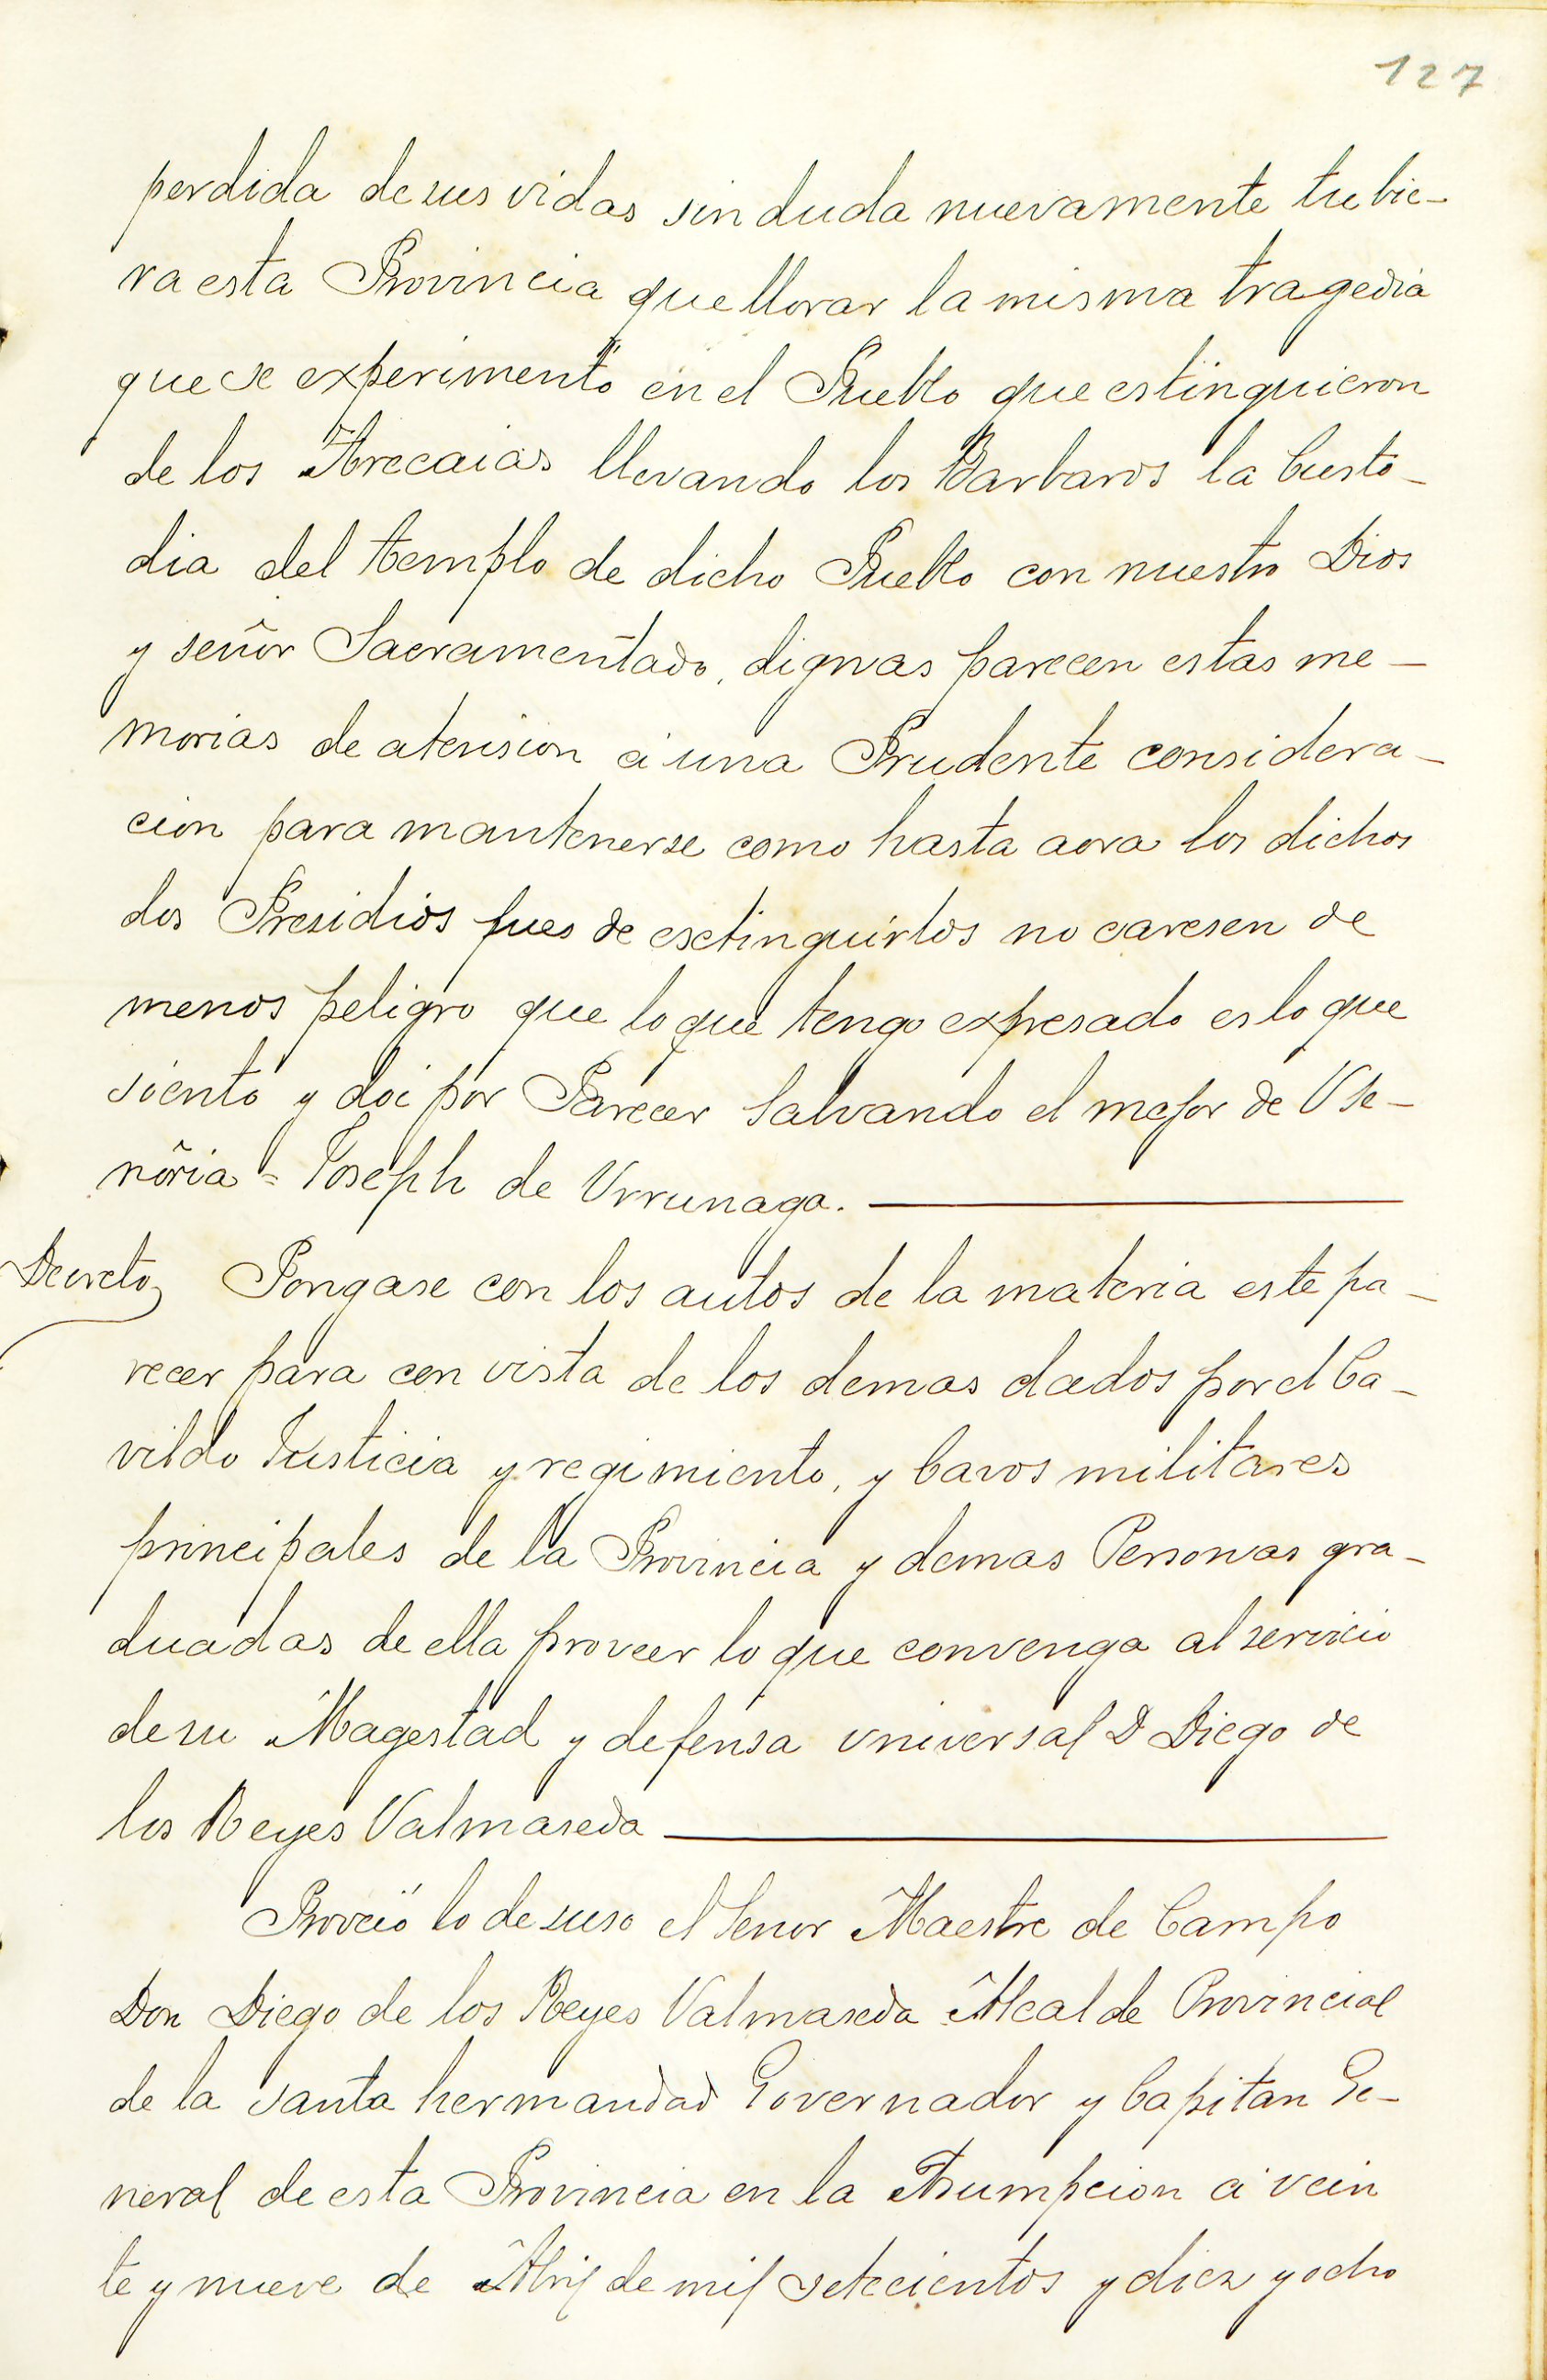 127
perdida de sus vidas sin duda nuevamente tubie-
ra esta Provincia que llorar la misma tragedia
que se experimentó en el Pueblo que estinguieron
de los Arecaias llevando los Barbaros la Custo-
dia del templo de dicho Pueblo con nuestro Dios
y señor Sacramentado, dignas parecen estas me-
morias de atension á una Prudente considera-
cion para mantenerse como hasta aora los dichos
dos Presidios pues de esctinguirlos no caresen de
menos peligro que lo que tengo expresado es lo que
siento y doi por Parecer Salvando el mejor de Vse-
ñoria = Joseph de Urrunaga.
Decreto Pongase con los autos de la materia este pa-
recer para con vista de los demas dados por el Ca-
vildo Justicia y regimiento, y Cavos militares
principales de la Provincia y demas Personas gra-
duadas de ella proveer lo que convenga al servicio
de su Magestad y defensa universal D Diego de
los Reyes Valmaseda
Proveió lo de suso el Senor Maestre de Campo
Don Diego de los Reyes Valmaseda Alcalde Provincial
de la santa hermandad Governador y Capitan Ge-
neral de esta Provincia en la Assumpcion á vein
te y nueve de Abril de mil setecientos y diez y ocho